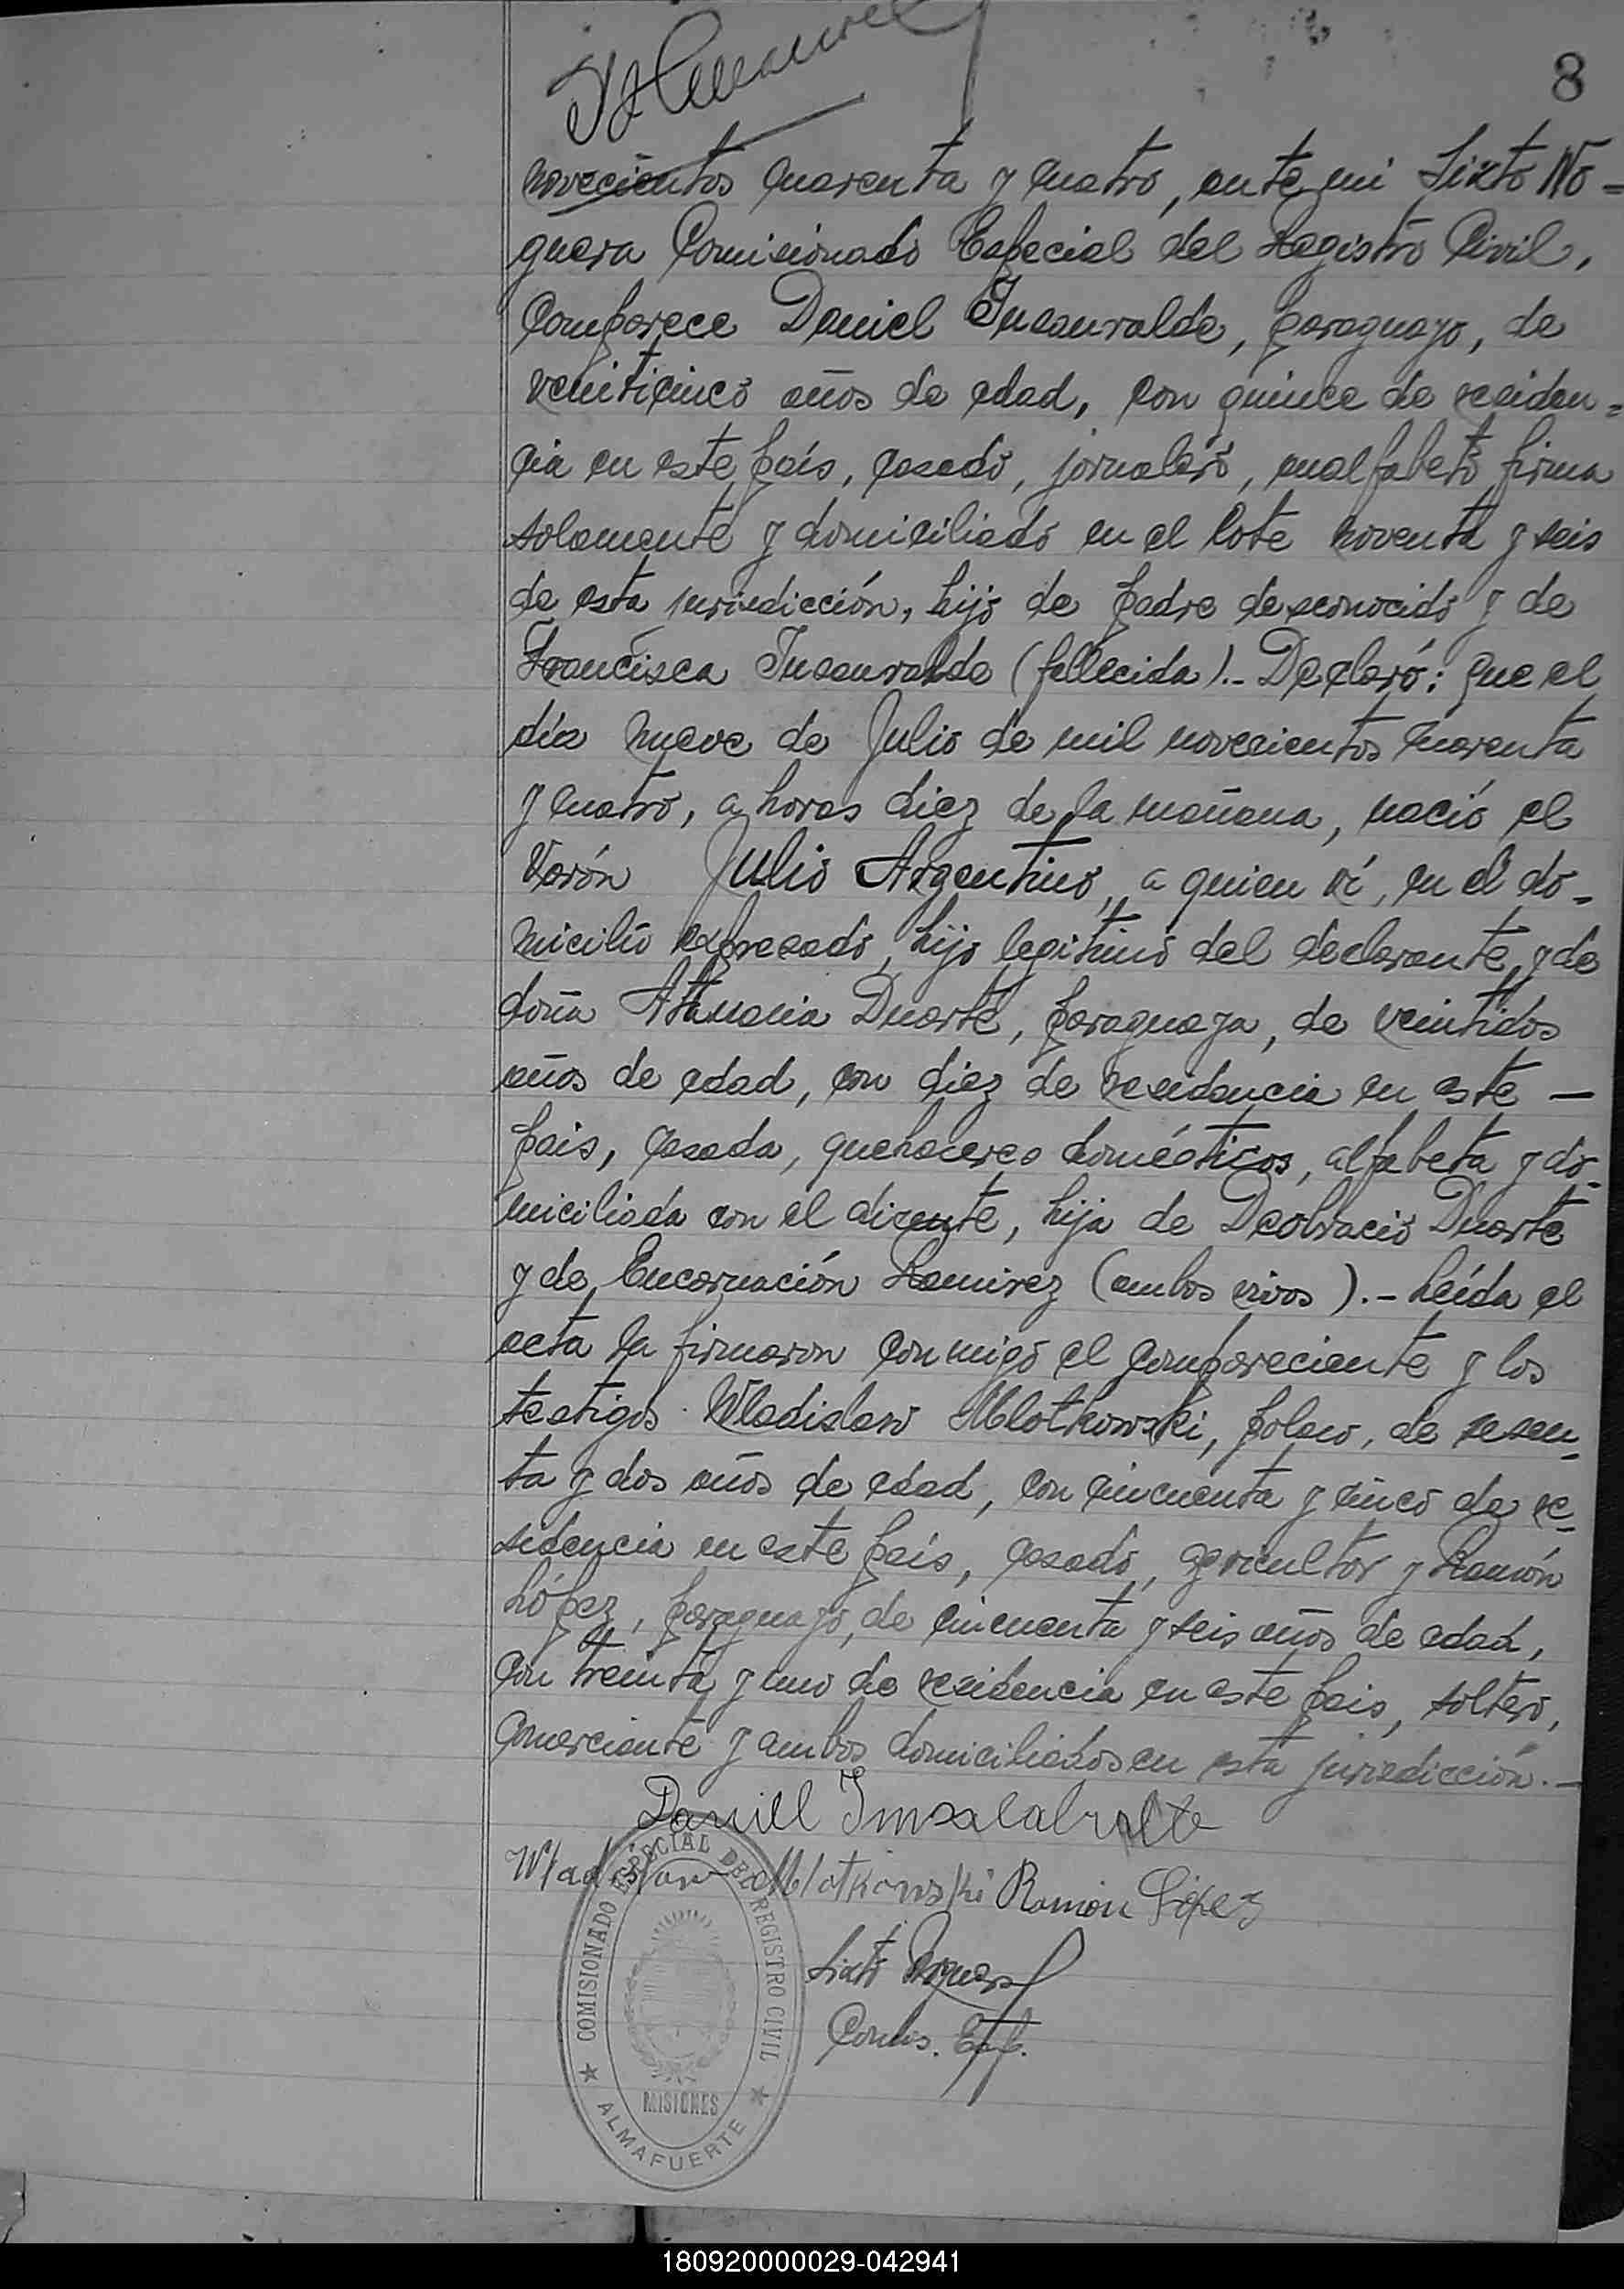 8
novecientos cuarenta y cuatro, ante mi Sixto No=
guera Comisionado Especial del Registro Civil,
Comparece Daniel Insauralde, paraguayo, de
veinticinco años de edad, con quince de residen=
cia en este país, casado, jornalero, analfabeto firma
solamente y domiciliado en el lote noventa y seis
de esta jurisdicción, hijo de padre desconocido y de
Francisca Insauralde (fallecida).- Declaró: Que el
día nueve de Julio de mil novecientos cuarenta
y cuatro, a horas diez de la mañana, nació el
Varón Julio Argentino, a quien ví, en el do-
micilio expresado, hijo legitimo del declarante, y de
doña Atanacia Duarte, paraguaya, de veintidos
años de edad, con diez de residencia en este —
pais, casada, quehaceres domésticos, alfabeta y do-
miciliada con el dicente, hija de Deolracio Duarte
y de Encarnación Ramirez (ambos vivos).- Leída el
acta la firmaron conmigo el compareciente y los
testigos Wladislaw Mlotkowski, polaco, de sesen-
ta y dos años de edad, con cincuenta y cinco de re-
sidencia en este país, casado, agricultor y Ramón
López, paraguayo, de cincuenta y seis años de edad,
con treinta y uno de residencia en este pais, soltero,
comerciante y ambos domiciliados en esta jurisdicción.-
Daniel
Wladislaw Mlotkowski Ramón López
Sixto Noguera
Comis. Esp.
COMISIONADO ESPECIAL DEL REGISTRO CIVIL
MISIONES
ALMAFUERTE
180920000029-042941